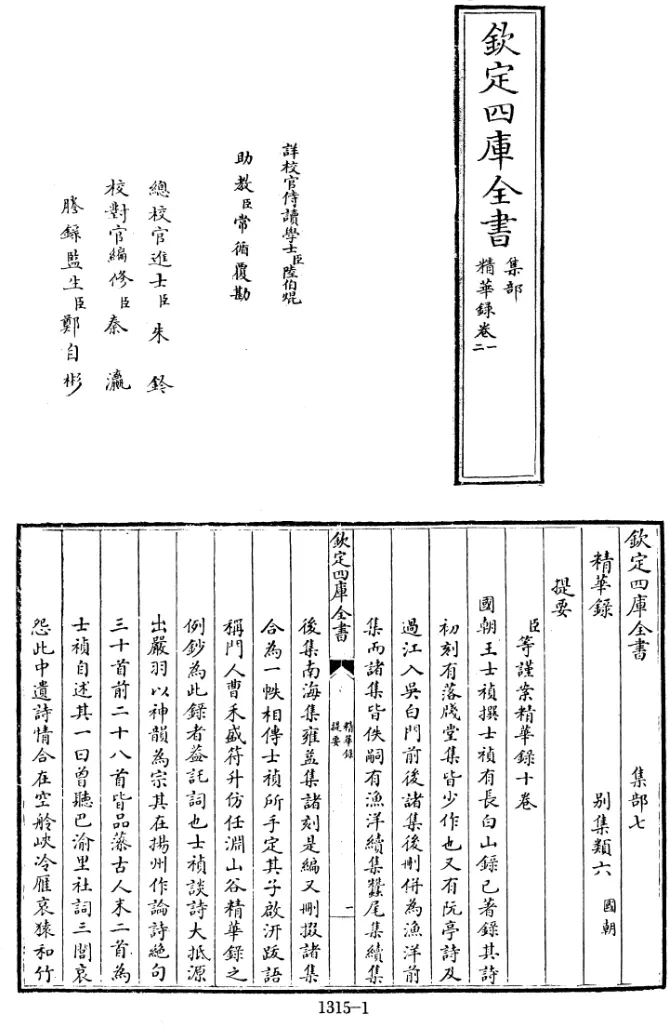 欽定四庫全書
集部
精華錄卷一
二
詳校官侍讀學士臣陸伯焜
助教臣常循覆勘
總校官進士臣朱鈐
校對官編修臣秦瀛
謄錄監生臣鄭自彬
欽定四庫全書 集部七
精華錄 別集類六 國朝
提要
臣等謹案精華錄十卷
國朝王士禎撰士禎有長白山錄已著錄其詩
初刻有落牋堂集皆少作也又有阮亭詩及
過江入吳白門前後諸集後刪併為漁洋前
集而諸集皆佚嗣有漁洋續集蠶尾集續集
欽定四庫全書
精華錄
提要
一
後集南海集雍益集諸刻是編又刪掇諸集
合為一帙相傳士禎所手定其子啟汧跋語
稱門人曹禾盛符升仿任淵山谷精華錄之
例鈔為此錄者蓋託詞也士禎談詩大抵源
出嚴羽以神韻為宗其在揚州作論詩絕句
三十首前二十八首皆品藻古人末二首為
士禎自述其一曰曾聽巴渝里社詞三閭哀
怨此中遺詩情合在空舲峽冷雁哀猿和竹
1315-1